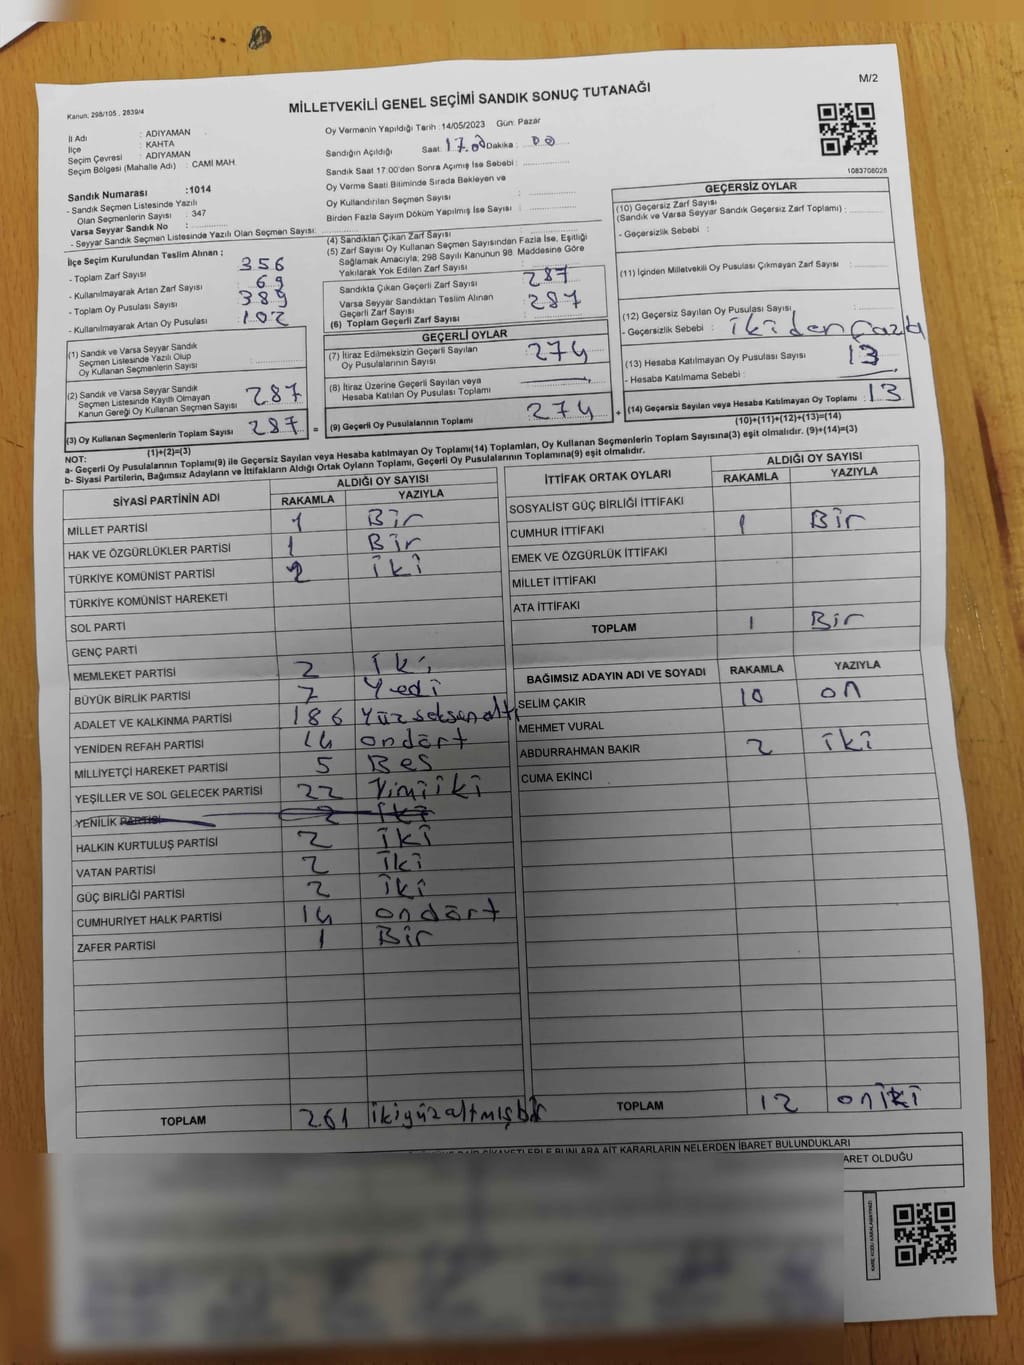 M/2
Kanun: 298/105 , 2839/4
MİLLETVEKİLİ GENEL SEÇİMİ SANDIK SONUÇ TUTANAĞI
İl Adı : ADIYAMAN
İlçe : KAHTA
Seçim Çevresi : ADIYAMAN
Seçim Bölgesi (Mahalle Adı) : CAMİ MAH.
Sandık Numarası :1014
- Sandık Seçmen Listesinde Yazılı
Olan Seçmenlerin Sayısı : 347
Varsa Seyyar Sandık No :
- Seyyar Sandık Seçmen Listesinde Yazılı Olan Seçmen Sayısı:
Oy Vermenin Yapıldığı Tarih :14/05/2023 Gün: Pazar
Sandığın Açıldığı Saat: 17.00 Dakika : 00
Sandık Saat 17:00'den Sonra Açımış İse Sebebi :
Oy Verme Saati Bitiminde Sırada Bekleyen ve
Oy Kullandırılan Seçmen Sayısı :
Birden Fazla Sayım Döküm Yapılmış İse Sayısı :
1083708028
İlçe Seçim Kurulundan Teslim Alınan ;
- Toplam Zarf Sayısı 356
- Kullanılmayarak Artan Zarf Sayısı 69
- Toplam Oy Pusulası Sayısı 389
- Kullanılmayarak Artan Oy Pusulası 102
(1) Sandık ve Varsa Seyyar Sandık
Seçmen Listesinde Yazılı Olup
Oy Kullanan Seçmenlerin Sayısı
(2) Sandık ve Varsa Seyyar Sandık
Seçmen Listesinde Kayıtlı Olmayan
Kanun Gereği Oy Kullanan Seçmen Sayısı 287
(3) Oy Kullanan Seçmenlerin Toplam Sayısı 287
(1)+(2)=(3)
(4) Sandıktan Çıkan Zarf Sayısı
(5) Zarf Sayısı Oy Kullanan Seçmen Sayısından Fazla İse, Eşitliği
Sağlamak Amacıyla, 298 Sayılı Kanunun 98. Maddesine Göre
Yakılarak Yok Edilen Zarf Sayısı
Sandıkta Çıkan Geçerli Zarf Sayısı 287
Varsa Seyyar Sandıktan Teslim Alınan
Geçerli Zarf Sayısı 287
(6) Toplam Geçerli Zarf Sayısı
GEÇERLİ OYLAR
(7) İtiraz Edilmeksizin Geçerli Sayılan
Oy Pusulalarının Sayısı 274
(8) İtiraz Üzerine Geçerli Sayılan veya
Hesaba Katılan Oy Pusulası Toplamı
= (9) Geçerli Oy Pusulalarının Toplamı 274 +
GEÇERSİZ OYLAR
(10) Geçersiz Zarf Sayısı
(Sandık ve Varsa Seyyar Sandık Geçersiz Zarf Toplamı) :
- Geçersizlik Sebebi :
(11) İçinden Milletvekili Oy Pusulası Çıkmayan Zarf Sayısı
(12) Geçersiz Sayılan Oy Pusulası Sayısı
- Geçersizlik Sebebi : ikiden fazla
(13) Hesaba Katılmayan Oy Pusulası Sayısı 13
- Hesaba Katılmama Sebebi :
(14) Geçersiz Sayılan veya Hesaba Katılmayan Oy Toplamı : 13
(10)+(11)+(12)+(13)=(14)
NOT:
a- Geçerli Oy Pusulalarının Toplamı(9) ile Geçersiz Sayılan veya Hesaba katılmayan Oy Toplamı(14) Toplamları, Oy Kullanan Seçmenlerin Toplam Sayısına(3) eşit olmalıdır. (9)+(14)=(3)
b- Siyasi Partilerin, Bağımsız Adayların ve İttifakların Aldığı Ortak Oyların Toplamı, Geçerli Oy Pusulalarının Toplamına(9) eşit olmalıdır.
SİYASİ PARTİNİN ADI ALDIĞI OY SAYISI
RAKAMLA YAZIYLA
MİLLET PARTİSİ 1 Bir
HAK VE ÖZGÜRLÜKLER PARTİSİ 1 Bir
TÜRKİYE KOMÜNİST PARTİSİ 2 iki
TÜRKİYE KOMÜNİST HAREKETİ
SOL PARTİ
GENÇ PARTİ
MEMLEKET PARTİSİ 2 iki
BÜYÜK BİRLİK PARTİSİ 7 Yedi
ADALET VE KALKINMA PARTİSİ 186 Yüzseksenaltı
YENİDEN REFAH PARTİSİ 14 ondört
MİLLİYETÇİ HAREKET PARTİSİ 5 Bes
YEŞİLLER VE SOL GELECEK PARTİSİ 22 Yirmiiki
YENİLİK PARTİSİ 2 iki
HALKIN KURTULUŞ PARTİSİ 2 iki
VATAN PARTİSİ 2 iki
GÜÇ BİRLİĞİ PARTİSİ 2 iki
CUMHURİYET HALK PARTİSİ 14 ondört
ZAFER PARTİSİ 1 Bir
TOPLAM 261 ikiyüzaltmışbir
İTTİFAK ORTAK OYLARI ALDIĞI OY SAYISI
RAKAMLA YAZIYLA
SOSYALİST GÜÇ BİRLİĞİ İTTİFAKI
CUMHUR İTTİFAKI 1 Bir
EMEK VE ÖZGÜRLÜK İTTİFAKI
MİLLET İTTİFAKI
ATA İTTİFAKI
TOPLAM 1 Bir
BAĞIMSIZ ADAYIN ADI VE SOYADI RAKAMLA YAZIYLA
SELİM ÇAKIR 10 on
MEHMET VURAL
ABDURRAHMAN BAKIR 2 iki
CUMA EKİNCİ
TOPLAM 12 oniki
BUNLARA AİT KARARLARIN NELERDEN İBARET BULUNDUKLARI
ARET OLDUĞU